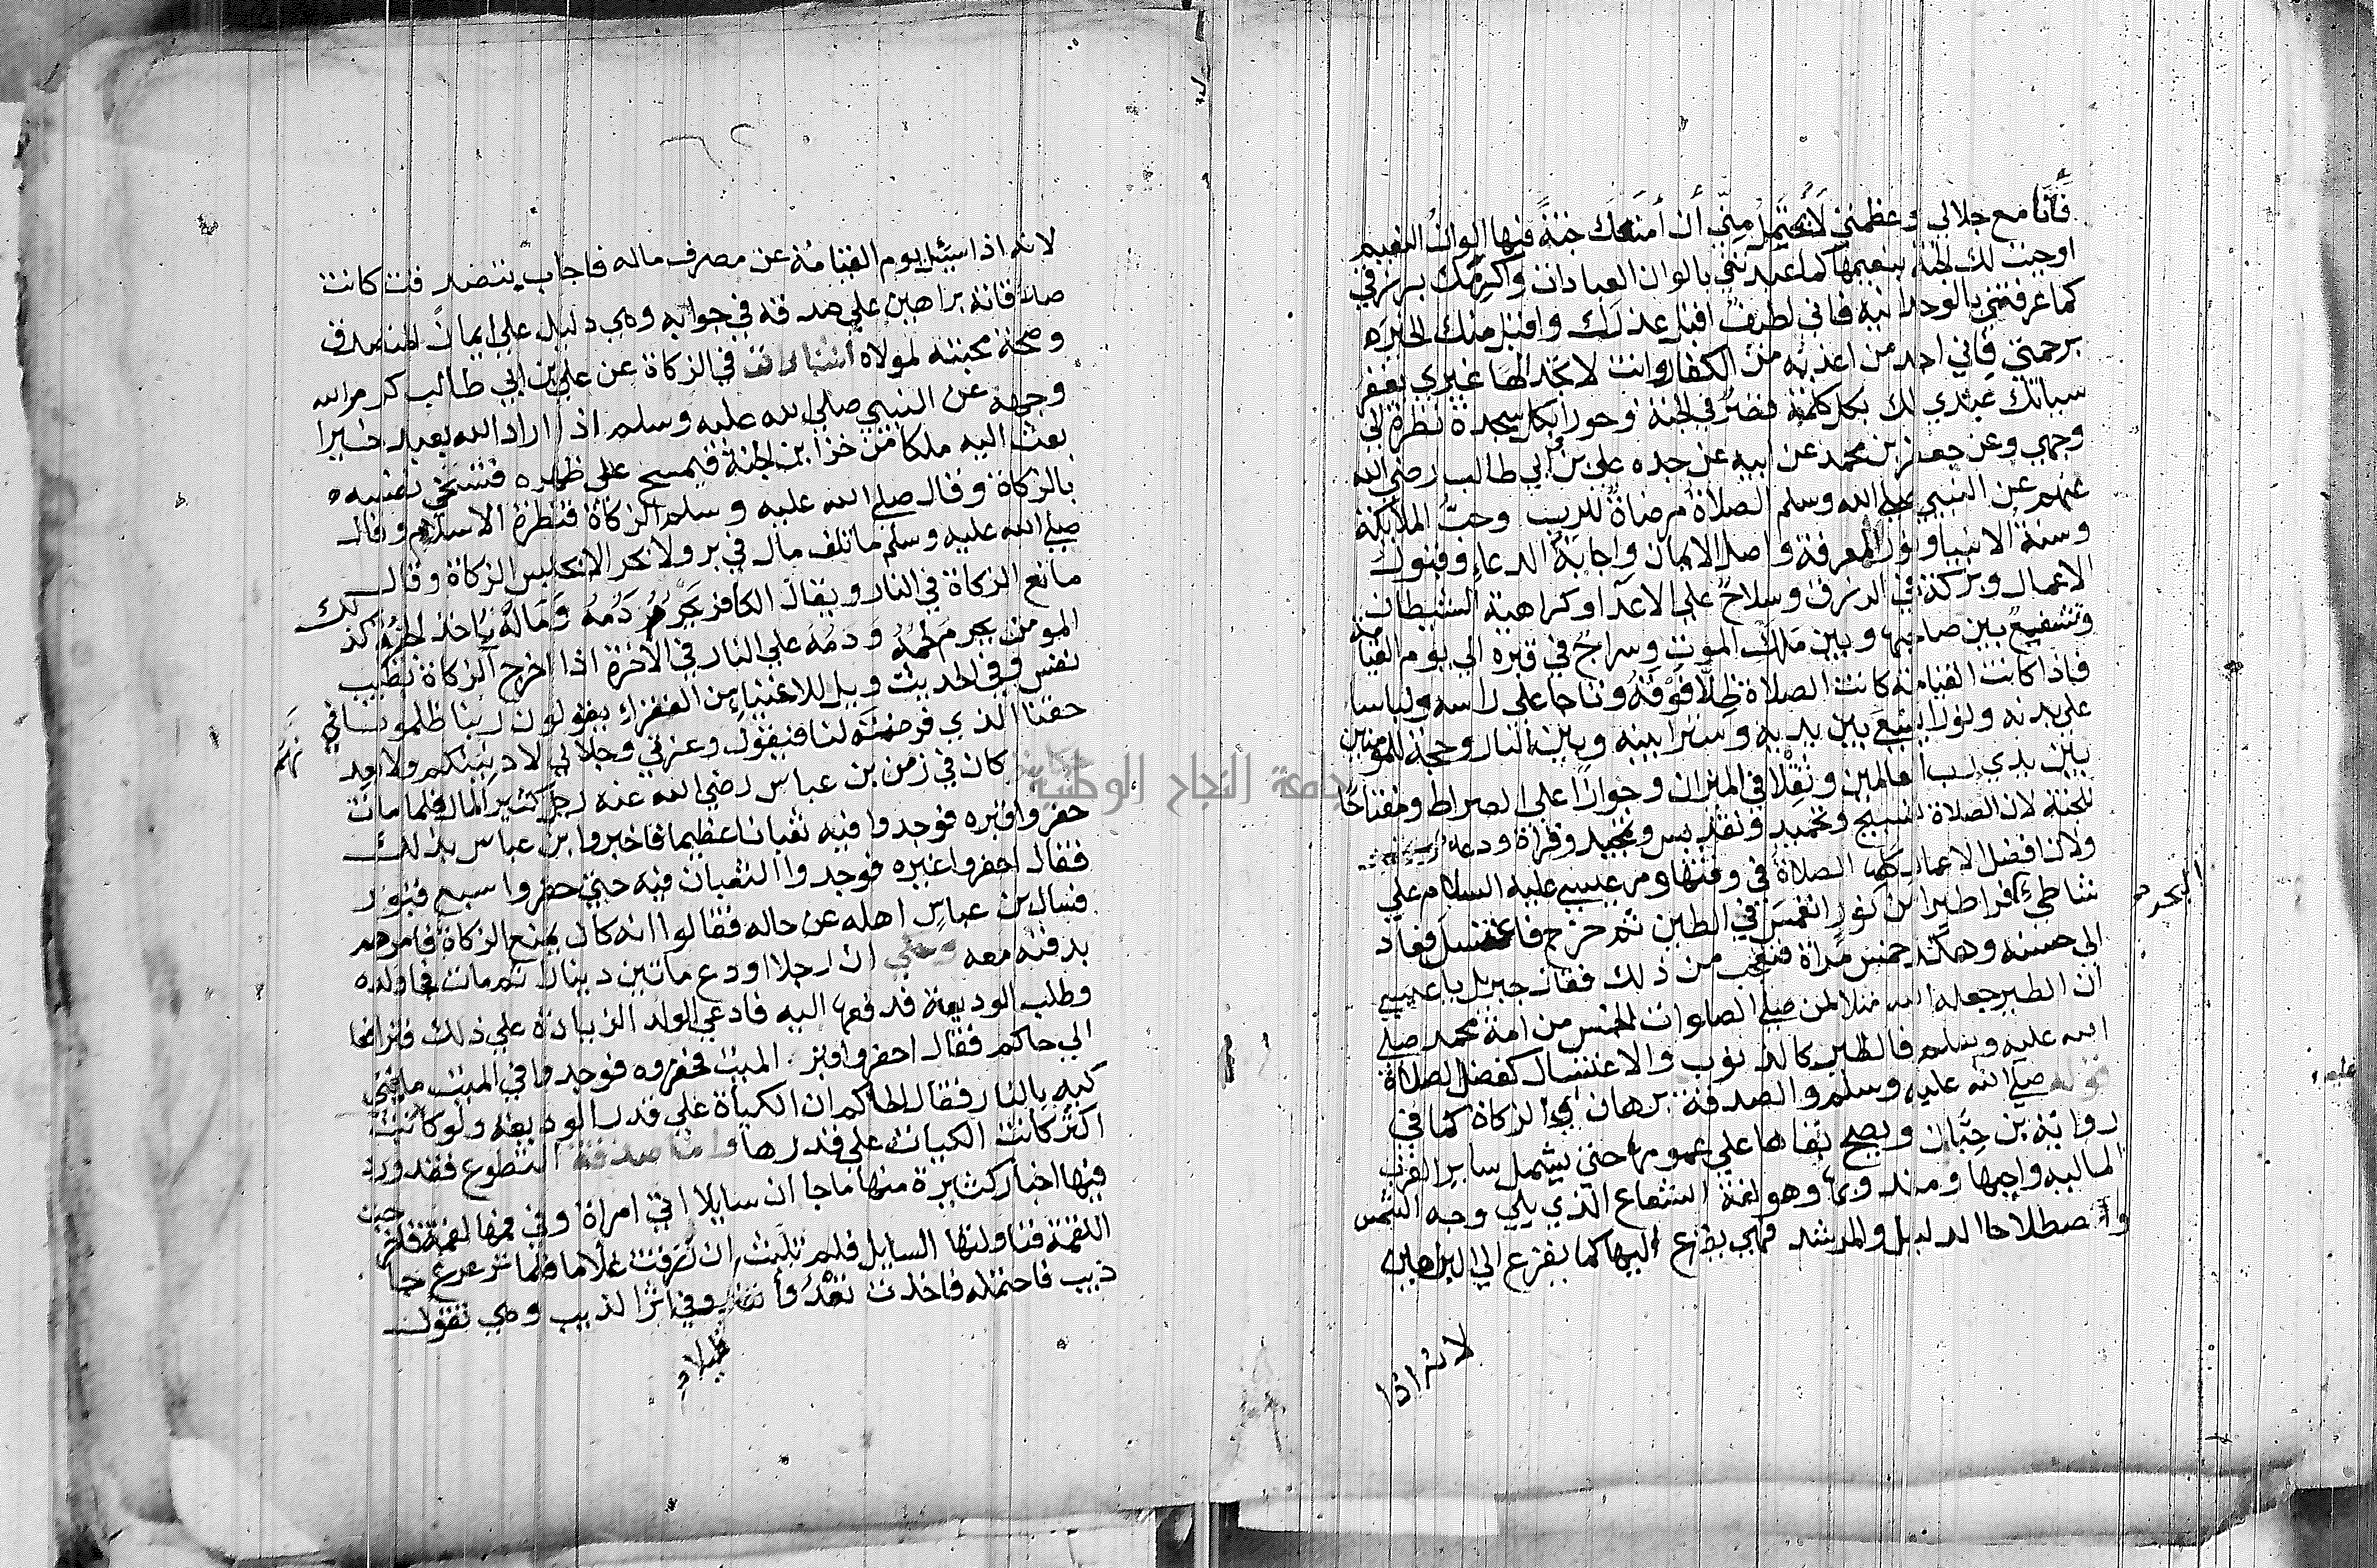 فَأَنَا مع جلالي وعظمتي لَا يُحتَمِلُ مِنِّي أن أمنَعَكَ جنةً فيها الوانُ النعيم
اوجبت لك الجنة بنعيمها كما عبدتني بالوان العبادات واكرمك برزقي
كما عرفتني بالوحدانية فاني لطيف اقبل عذرك واقبل منك الخير
برحمتي فاني احد من اعذبه من الكفار وانت لا تجد الها غيري يغفر
سياتك عبدي لك بكل ركعة قصر في الجنة وحورا بكل سجدة نظرة الي
وجهي وعن جعفر بن محمد عن ابيه عن جده علي بن ابي طالب رضي الله
عنهم عن النبي صلي الله وسلم الصلاة مرضاةٌ للرب وحبُّ الملائكة
وسنة الانبيا ونور المعرفة واصل الايمان واجابة الدعاء وقبول
الاعمال وبركة في الرزق وسلاح علي الاعدا وكراهية الشيطان
وتشفيع بين صاحبها وبين ملك الموت وسراج في قبره الي يوم القيامة
فاذا كانت القيامة كانت الصلاة ظلا فوقه وتاجا علي راسه ولباسا
علي بدنه ونورا يسعَ بين يديه وسترا بينه وبين النار وحجة للمومنين
بين يدي رب العالمين وثقلا في الميزان وجوازا علي الصراط ومفتاحا
للجنة لان الصلاة تسبيح وتحميد وتقديس وتمجيد وقراة ودعا
ولان افضل الاعمال كلها الصلاة في وقتها ومر عيسي عليه السلام علي
شاطئ البحر فرا طيرا من نور انغمس في الطين ثم خرج فاغتسل فعاد
الي حسنه وهكذا خمس مراة فتعجب من ذلك فقال جبريل يا عيسي
ان الطير جعله الله مثلا لمن صلي الصلوات الخمس من امة محمد صلي
الله عليه وسلم فالطين كالذنوب والاغتسال كفضل الصلاة
قوله صلي الله عليه وسلم والصدقة برهان اي الزكاة كما في
رواية بن حبان ويصح بقاها علي عمومها حتي يشمل ساير القرب
المالية واجبها ومندوبها وهو لغة الشعاع الذي يلي وجه الشمس
واصطلاحا الدليل والمرشد فهي يفزع اليها كما يفزع الي البراهين
لانه اذا
لانه اذا سيئل يوم القيامة عن مصرف ماله فاجاب بتصدقت كانت
صدقاته براهين علي صدقه في جوابه وهي دليل علي ايمان المتصدق
وصحة محبته لمولاه في الزكاة عن علي بن ابي طالب كرم الله
وجهه عن النبي صلي الله عليه وسلم اذا اراد الله بعبد خيرا
بعث اليه ملكا من خزاين الجنة فيمسح علي ظهره فتسخي نفسه
بالزكاة وقال صلي الله عليه وسلم الزكاة قنطرة الاسلام وقال
صلي الله عليه وسلم ما تلف مال في بر ولا بحر الا بحبس الزكاة وقال
مانع الزكاة في النار ويقال الكافر يحرم دمه وماله باخذ الجزية كذلك
المومن يحرم لحمه ودمه علي النار في الاخرة اذا اخرج الزكاة بطيب
نفس وفي الحديث ويل للاغنياء من الفقراء يقولون ربنا ظلمونا في
حقنا الذي فرضته لنا فيقول وعزتي وجلالي لادنينكم ولابعدنهم
كان في زمن بن عباس رضي الله عنه رجل كثير المال فلما مات
حفروا قبره فوجدوا فيه ثعبانا عظيما فاخبروا بن عباس بذلك
فقال احفروا غيره فوجدوا الثعبان فيه حتي حفروا سبع قبور
فسال بن عباس اهله عن حاله فقالوا انه كان يمنع الزكاة فامرهم
بدفنه معه وحكي ان رجلا اودع ماتين دينار ثم مات فجا ولده
وطلب الوديعة فدفعها اليه فادعي الولد الزيادة علي ذلك فترافعا
الي حاكم فقال احفروا قبر الميت فحفروه فوجدوا في الميت مايتي
كيه بالنار فقال الحاكم ان الكياة علي قدر الوديعة ولو كانت
اكثر كانت الكيات علي قدرها واما صدقة التطوع فقد ورد
فيها اخبار كثيرة منها ما جا ان سايلا اتي امراة وفي فمها لقمة فاخرجت
اللقمة فناولتها السايل فلم تلبث ان رزقت غلاما فلما ترعرع جا
ذيب فاحتمله فاخذت تعدو في اثر الذيب وهي تقول